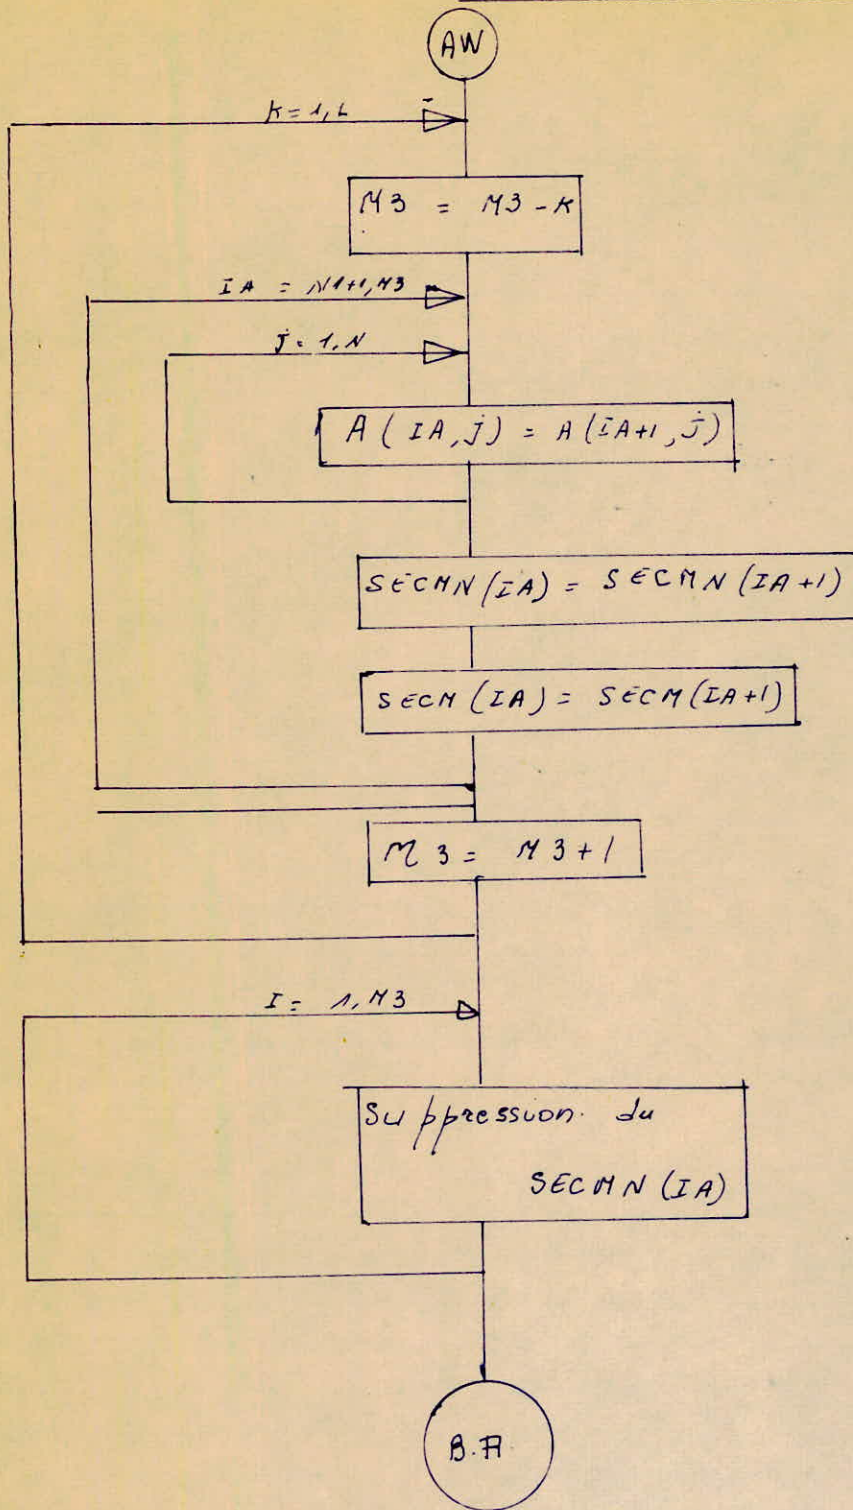 AW
K=1,L
M3 = M3-K
IA = N1+1,M3
j=1,N
A(IA,j) = A(IA+1,j)
SECMN(IA) = SECMN(IA+1)
SECM(IA) = SECM(IA+1)
M3 = M3+1
I= 1,M3
Suppression. du
SECMN(IA)
B.A.